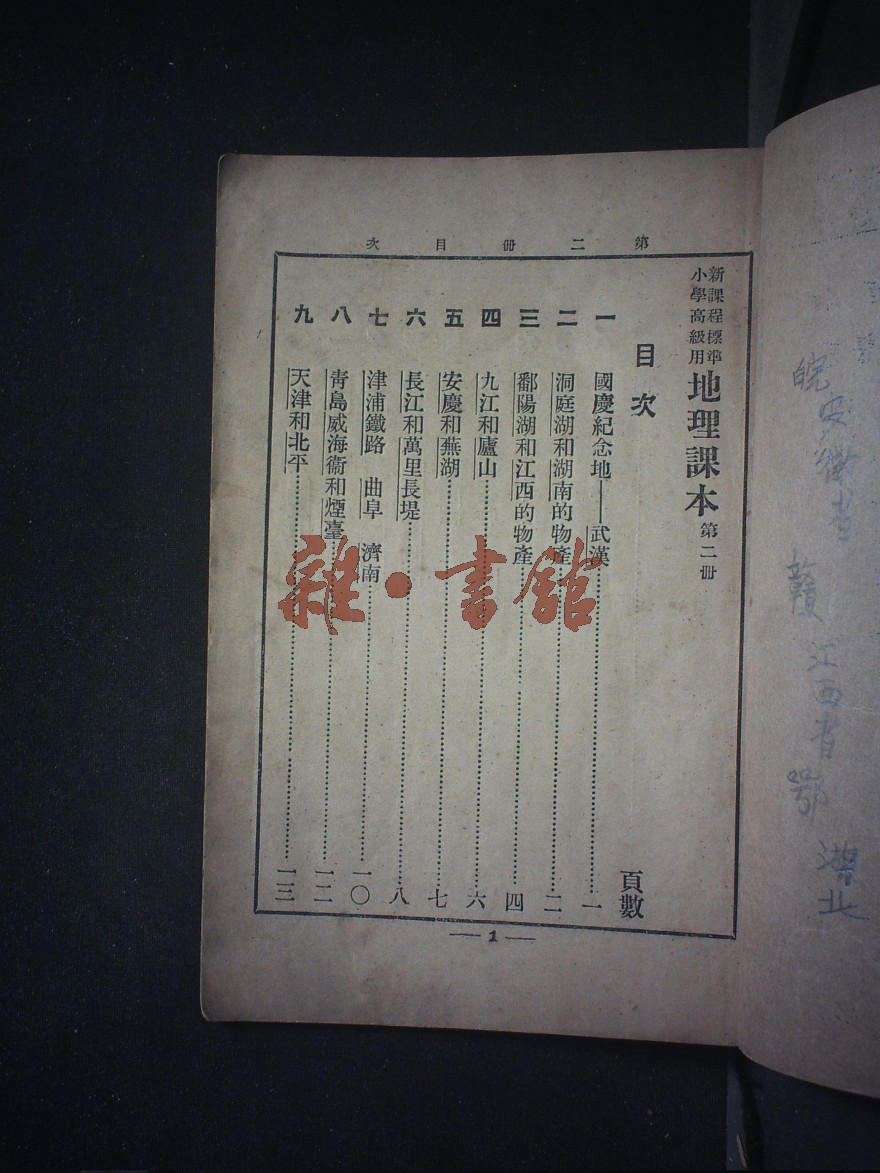 第二册目次
新課程標準
小學高級用
地理課本 第二册
目次
頁數
一 國慶紀念地——武漢 一
二 洞庭湖和湖南的物產 二
三 鄱陽湖和江西的物產 四
四 九江和廬山 六
五 安慶和蕪湖 七
六 長江和萬里長堤 八
七 津浦鐵路 曲阜 濟南 一〇
八 青島威海衞和煙臺 一二
九 天津和北平 一三
— 1 —
雜·書館
皖 安徽省
贛 江西省
鄂 湖北